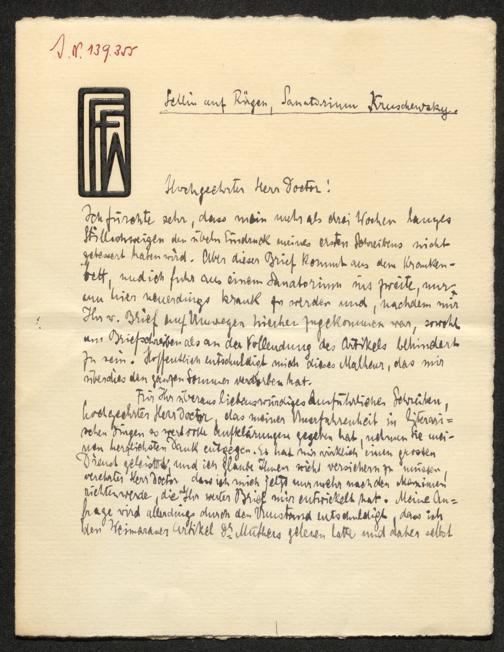 J.N. 139355
FFW
Sellin auf Rügen, Sanatorium Kruschewsky.
Hochgeehrter Herr Doctor!
Ich fürchte sehr, dass mein mehr als drei Wochen langes
Stillschweigen den übeln Eindruck meines ersten Schreibens nicht
gebessert haben wird. Aber dieser Brief kommt aus dem Kranken-
bett, und ich fuhr aus einem Sanatorium ins zweite, nur
um hier neuerdings krank zu werden und, nachdem mir
Ihr w. Brief auf Umwegen hierher zugekommen war, sowohl
am Briefschreiben als an der Vollendung des Artikels behindert
zu sein. Hoffentlich entschuldigt mich dieses Malheur, das mir
überdies den ganzen Sommer verdorben hat.
Für Ihr überaus liebenswürdiges ausführliches Schreiben,
hochgeehrter Herr Doctor, das meiner Unerfahrenheit in literari=
schen Dingen so wertvolle Aufklärungen gegeben hat, nehmen Sie mei-
nen herzlichsten Dank entgegen. Es hat mir wirklich einen grossen
Dienst geleistet, und ich glaube Ihnen nicht versichern zu müssen,
verehrter Herr Doctor dass ich mich jetzt nur mehr nach den Maximen
richten werde, die Ihr werter Brief mir entwickelt hat. Meine An-
frage wird allerdings durch den Umstand entschuldigt, dass ich
den Weimaraner Artikel Dr. Muthers gelesen hatte und daher selbst